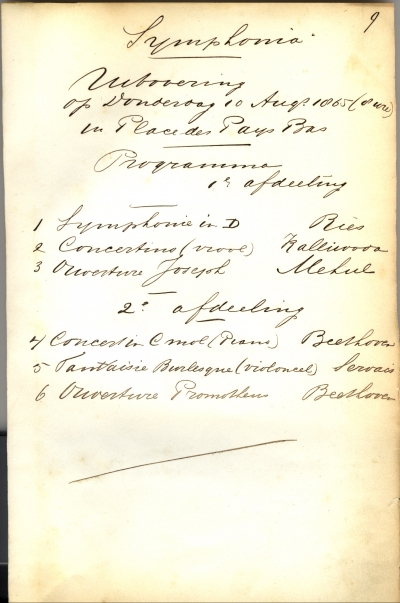 9
Symphonia
Uitvoering
op Donderdag 10 Augs. 1865 (8 ure)
in Place des Pays Bas
Programma
1e afdeeling
1 Symphonie in D Ries
2 Concertino (viool) Kalliwoda
3 Ouverture Joseph Mehul
2e afdeeling
4 Concert in C mol (Piano) Beethoven
5 Fantaisie Burlesque (violoncel) Servais
6 Ouverture Prometheus Beethoven